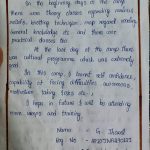 In the beginning days of the camp
there was theory classes regarding various
knotting techniques, map regard reading
General knowledge etc and there were
practical classes too.
At the last day of the camp there
was cultural programme which was extremely
good.
In this camp I learnt self confidence,
capability of facing difficulties, awareness
risks etc.
I hope in future I will be attending
more camps and training.
Name : G. Jhansi
Reg No :